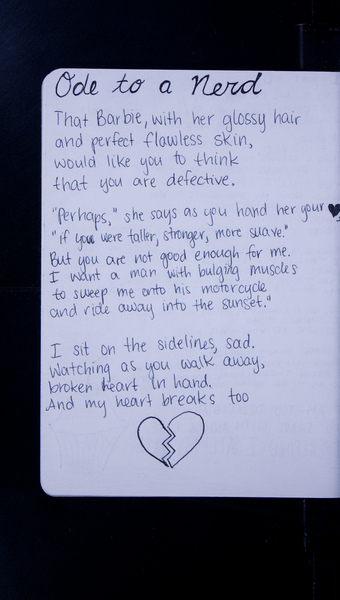 Ode to a Nerd
That Barbie, with her glossy hair
and perfect flawless skin,
would like you to think
that you are defective.
"Perhaps," she says as you hand her your ♥,
"if you were taller, stronger, more suave."
But you are not good enough for me.
I want a man with bulging muscles
to sweep me onto his motorcycle
and ride away into the sunset."
I sit on the sidelines, sad.
Watching as you walk away,
broken heart in hand.
And my heart breaks too